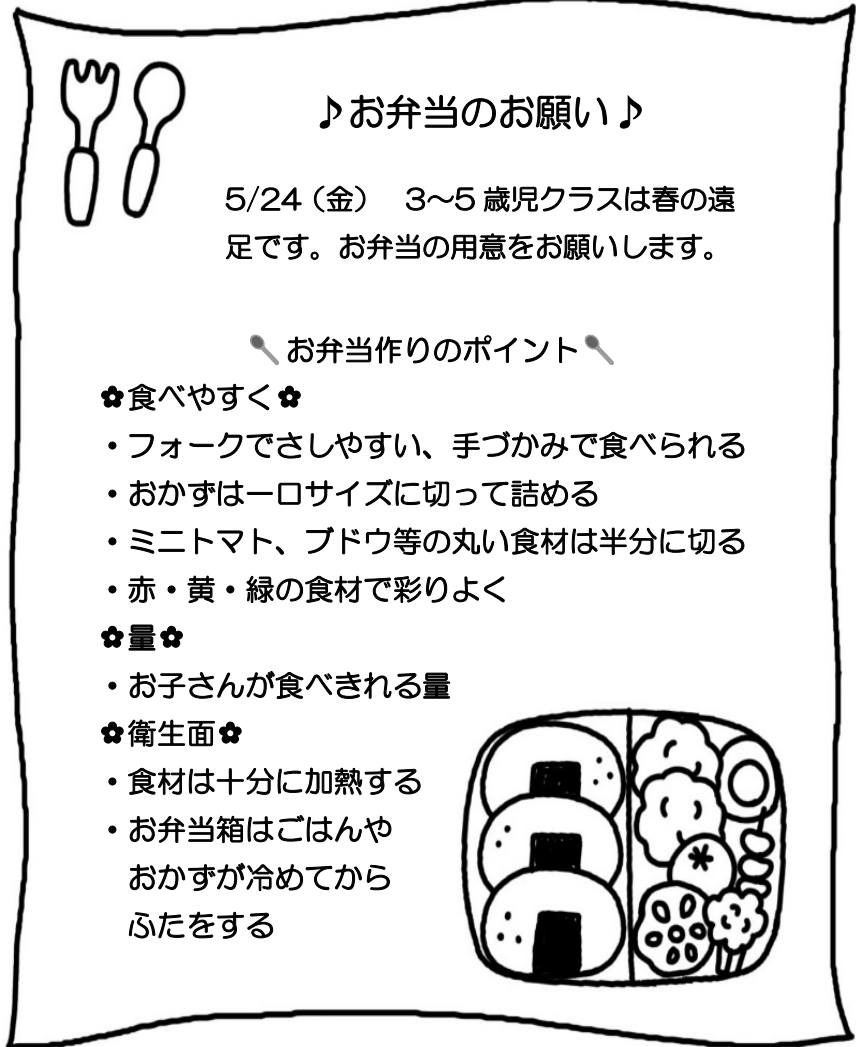 ♪お弁当のお願い♪
5/24（金）　3～5歳児クラスは春の遠
足です。お弁当の用意をお願いします。
お弁当作りのポイント
✿食べやすく✿
・フォークでさしやすい、手づかみで食べられる
・おかずは一口サイズに切って詰める
・ミニトマト、ブドウ等の丸い食材は半分に切る
・赤・黄・緑の食材で彩りよく
✿量✿
・お子さんが食べきれる量
✿衛生面✿
・食材は十分に加熱する
・お弁当箱はごはんや
おかずが冷めてから
ふたをする